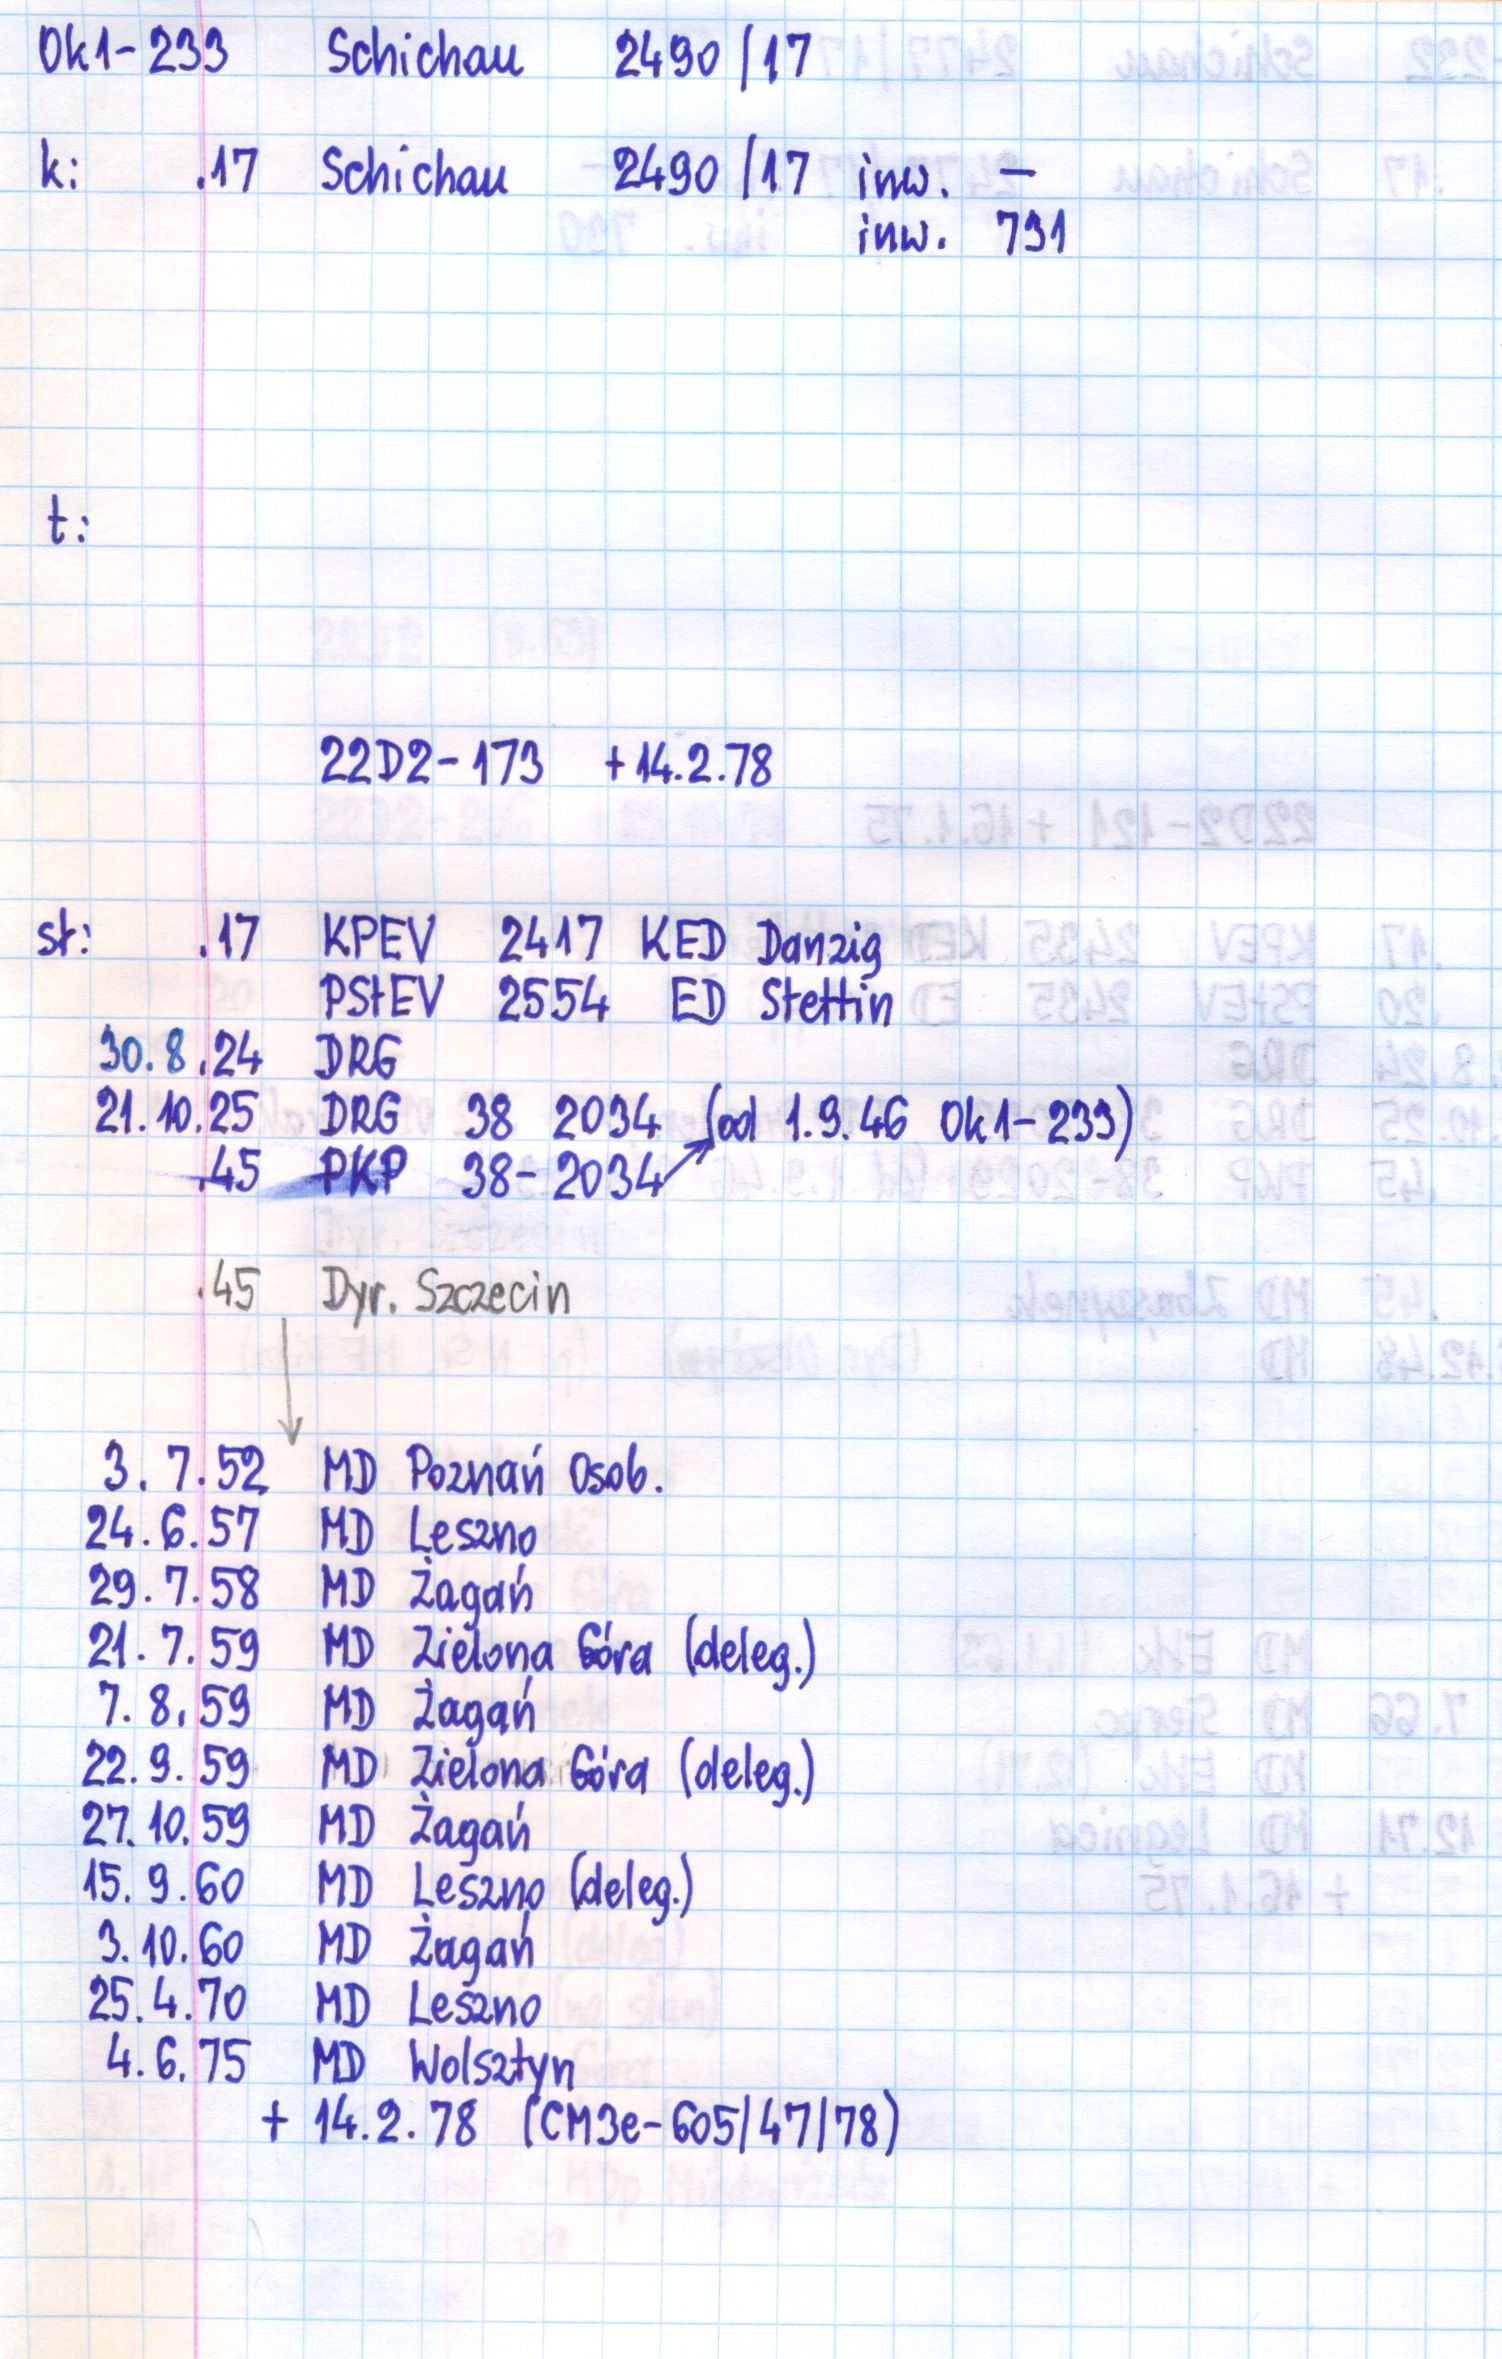 Ok1-233 Schichau 2490/17
k: .17 Schichau 2490/17 inw. –
inw. 731
t:
22D2-173 +14.2.78
st: .17 KPEV 2417 KED Danzig
PStEV 2554 ED Stettin
30.8.24 DRG
21.10.25 DRG 38 2034 (od 1.9.46 Ok1-233)
.45 PKP 38-2034
.45 Dyr. Szczecin
3.7.52 MD Poznań Osob.
24.6.57 MD Leszno
29.7.58 MD Żagań
21.7.59 MD Zielona Góra (deleg.)
7.8.59 MD Żagań
22.9.59 MD Zielona Góra (deleg.)
27.10.59 MD Żagań
15.9.60 MD Leszno (deleg.)
3.10.60 MD Żagań
25.4.70 MD Leszno
4.6.75 MD Wolsztyn
+ 14.2.78 (CM3e-605/47/78)